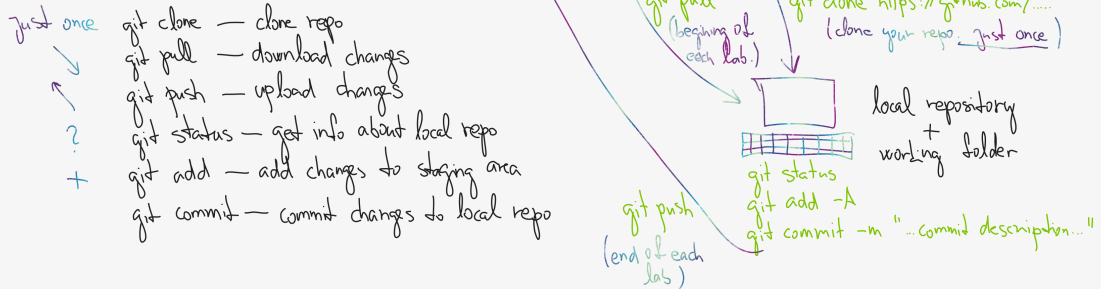 just once
git clone — clone repo
git pull — download changes
git push — upload changes
? git status — get info about local repo
+ git add — add changes to staging area
git commit — commit changes to local repo
git pull
(begining of
each lab.)
git clone https://github.com/.....
(clone your repo. just once)
local repository
+
working folder
git status
git add -A
git commit -m "...commit description..."
git push
(end of each
lab)